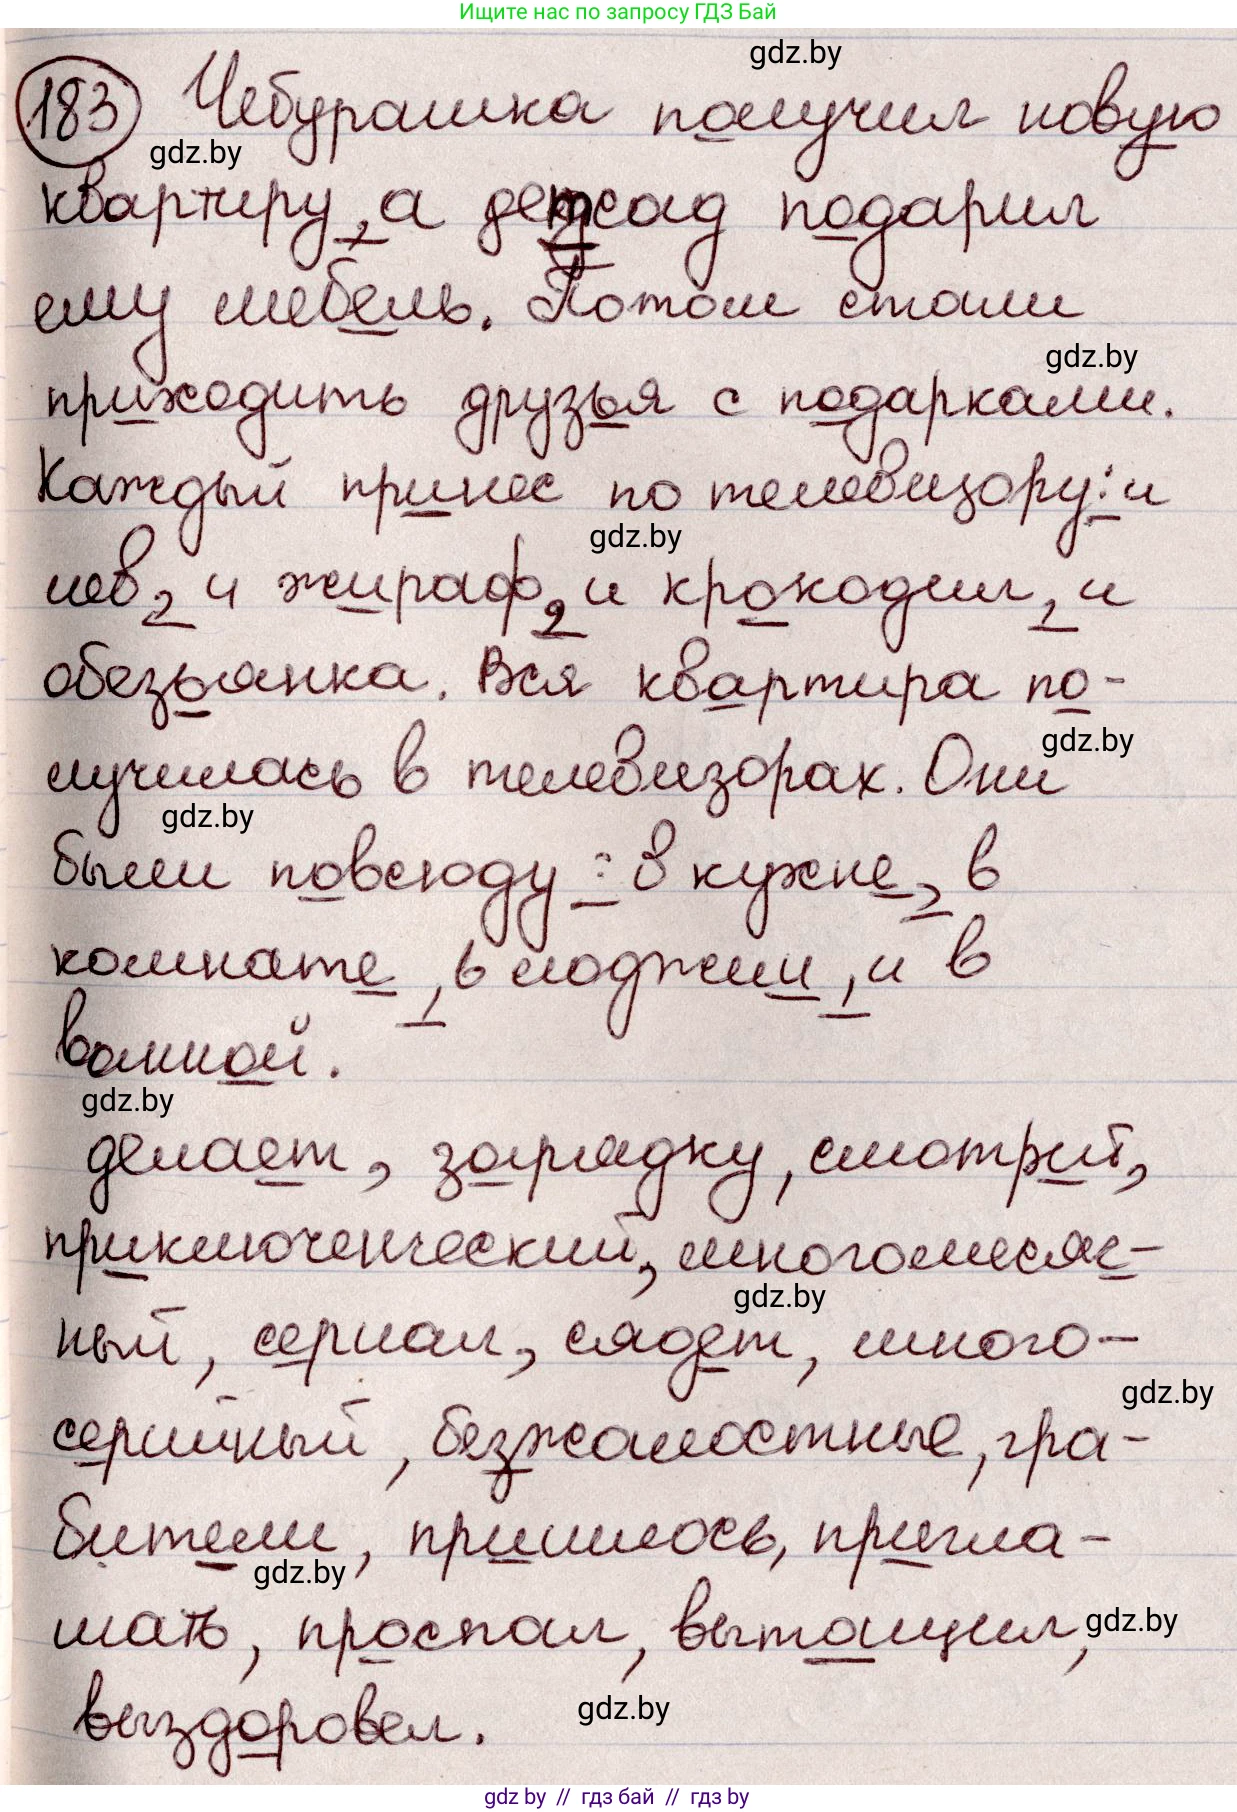 Ищите нас по запросу ГДЗ Бай
gdz.by
183 Чебурашка получил новую
gdz.by
квартиру, а детсад подарил
ему мебель. Потом стали
gdz.by
приходить друзья с подарками.
Каждый принес по телевизору: и
gdz.by
лев, и жираф, и крокодил, и
обезьянка. Вся квартира по-
gdz.by
лучилась в телевизорах. Они
gdz.by
были повсюду: в кухне, в
комнате, в лоджии, и в
ванной.
gdz.by
делает, зарядку, смотрит,
приключенческий, многомесяс-
gdz.by
ный, сериал, сядет, много-
gdz.by
серийный, безжалостные, гра-
бители, пришлось, пригла-
gdz.by
шать, проспал, вытащил,
gdz.by
выздоровел.
gdz.by
gdz.by // гдз бай // gdz.by